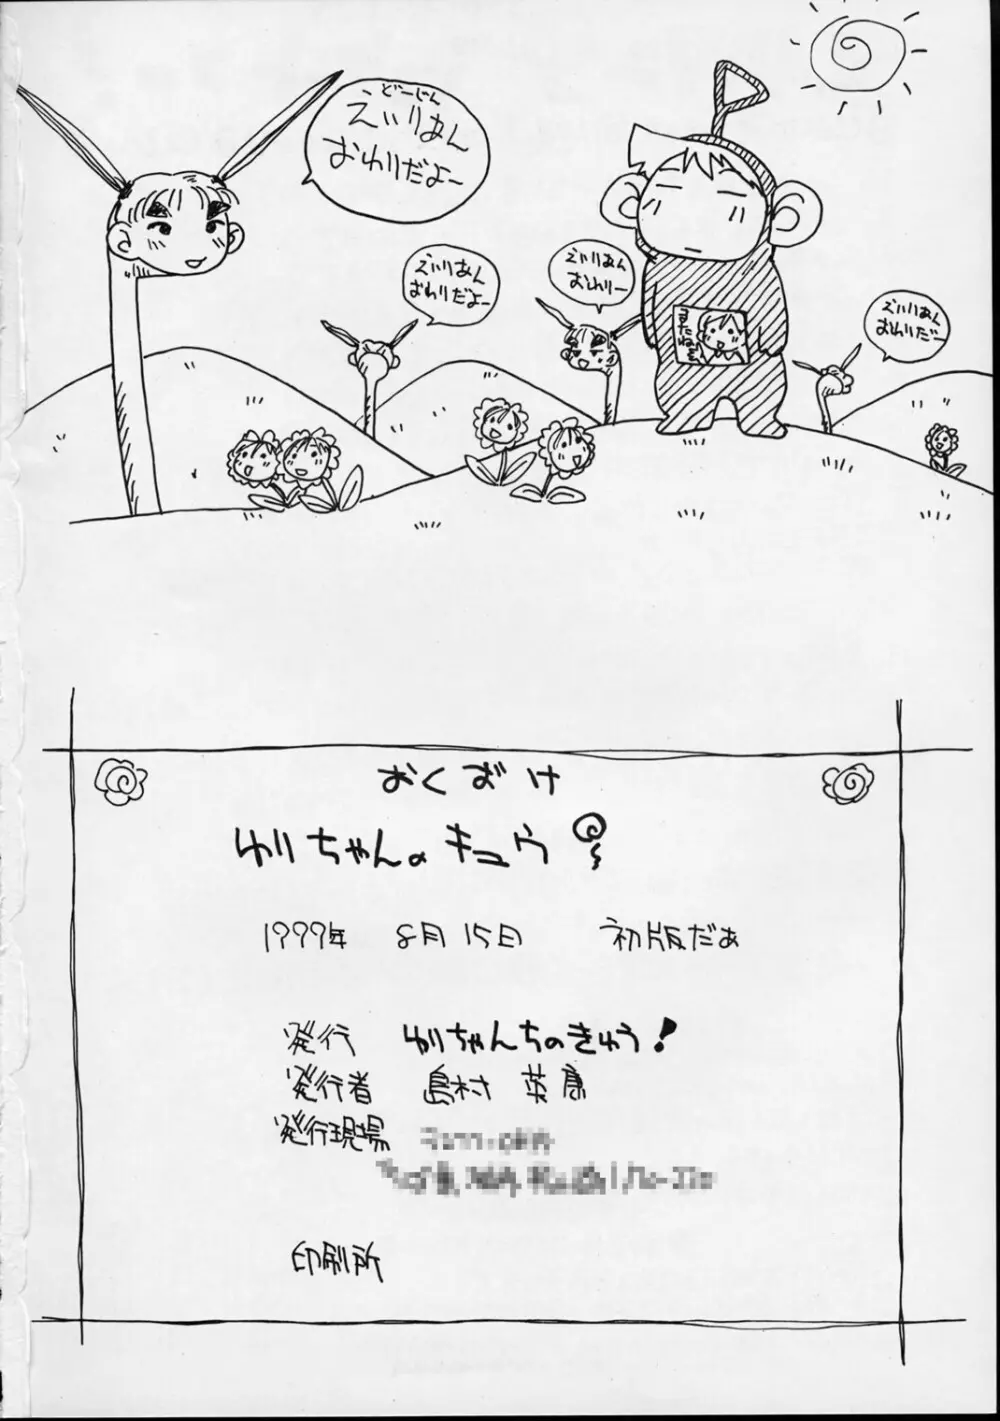 どーじん
えいりあん
おわりだよー
えいりあん
おわりだよー
えいりあん
おわりー
えいりあん
おわりだー
おくづけ
ゆりちゃんのキュウ
1999年 8月15日 初版だぁ
発行 ゆりちゃんちのきゅう!
発行者 島村 英康
発行現場
印刷所